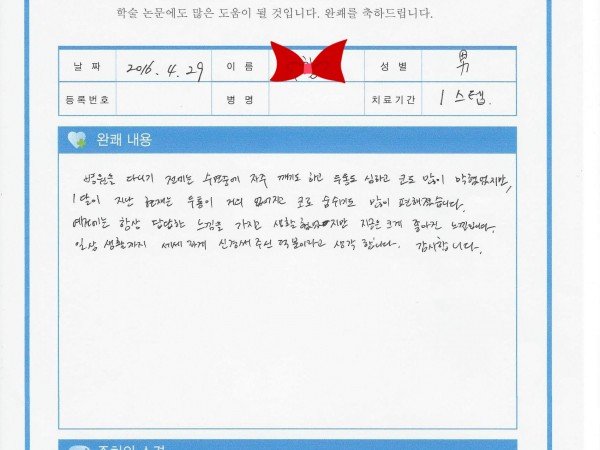 학술 논문에도 많은 도움이 될 것입니다. 완쾌를 축하드립니다.
날 짜 2016. 4. 29 이 름 성 별 男
등록번호 병 명 치료기간 1 스텝.
완쾌 내용
병원을 다니기 전에는 수면중에 자주 깨기도 하고 두통도 심하고 코도 많이 막혔었지만,
1달이 지난 현재는 두통이 거의 없어지고 코로 숨쉬기도 많이 편해졌습니다.
예전에는 항상 답답한 느낌을 가지고 생활 했었지만 지금은 크게 좋아진 느낌입니다.
일상 생활까지 세세 하게 신경써 주신 덕분이라고 생각 합니다. 감사합니다.